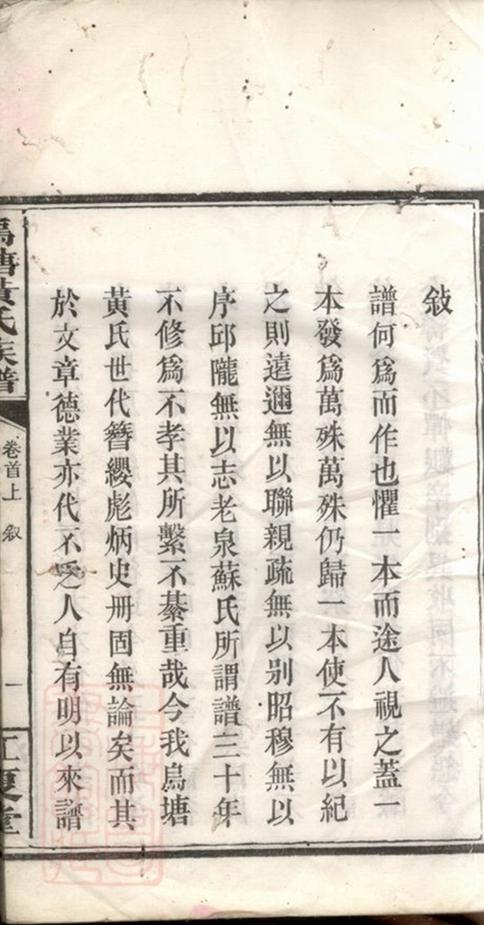 敍
譜何爲而作也懼一本而途人視之蓋一
本發爲萬殊萬殊仍歸一本使不有以紀
之則遠邇無以聯親疏無以别昭穆無以
序邱隴無以志老泉蘇氏所謂譜三十年
不修爲不孝其所繫不綦重哉今我烏塘
黃氏世代簪纓彪炳史册固無論矣而其
於文章德業亦代不乏人自有明以來譜
烏塘黃氏族譜
卷首上 敍
一
江夏堂